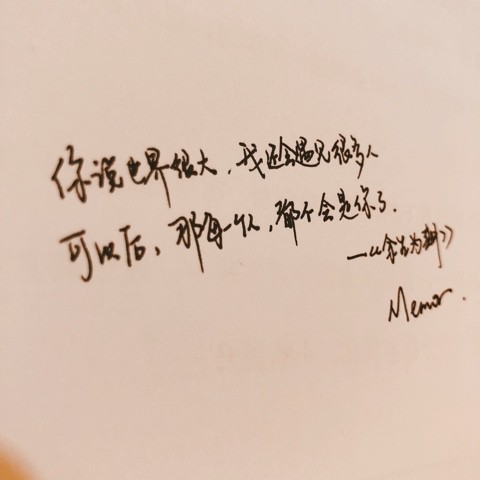 你说世界很大，我还会遇见很多人
可以后，那每一个人，都不会是你了.
—《余生为》
Memor.